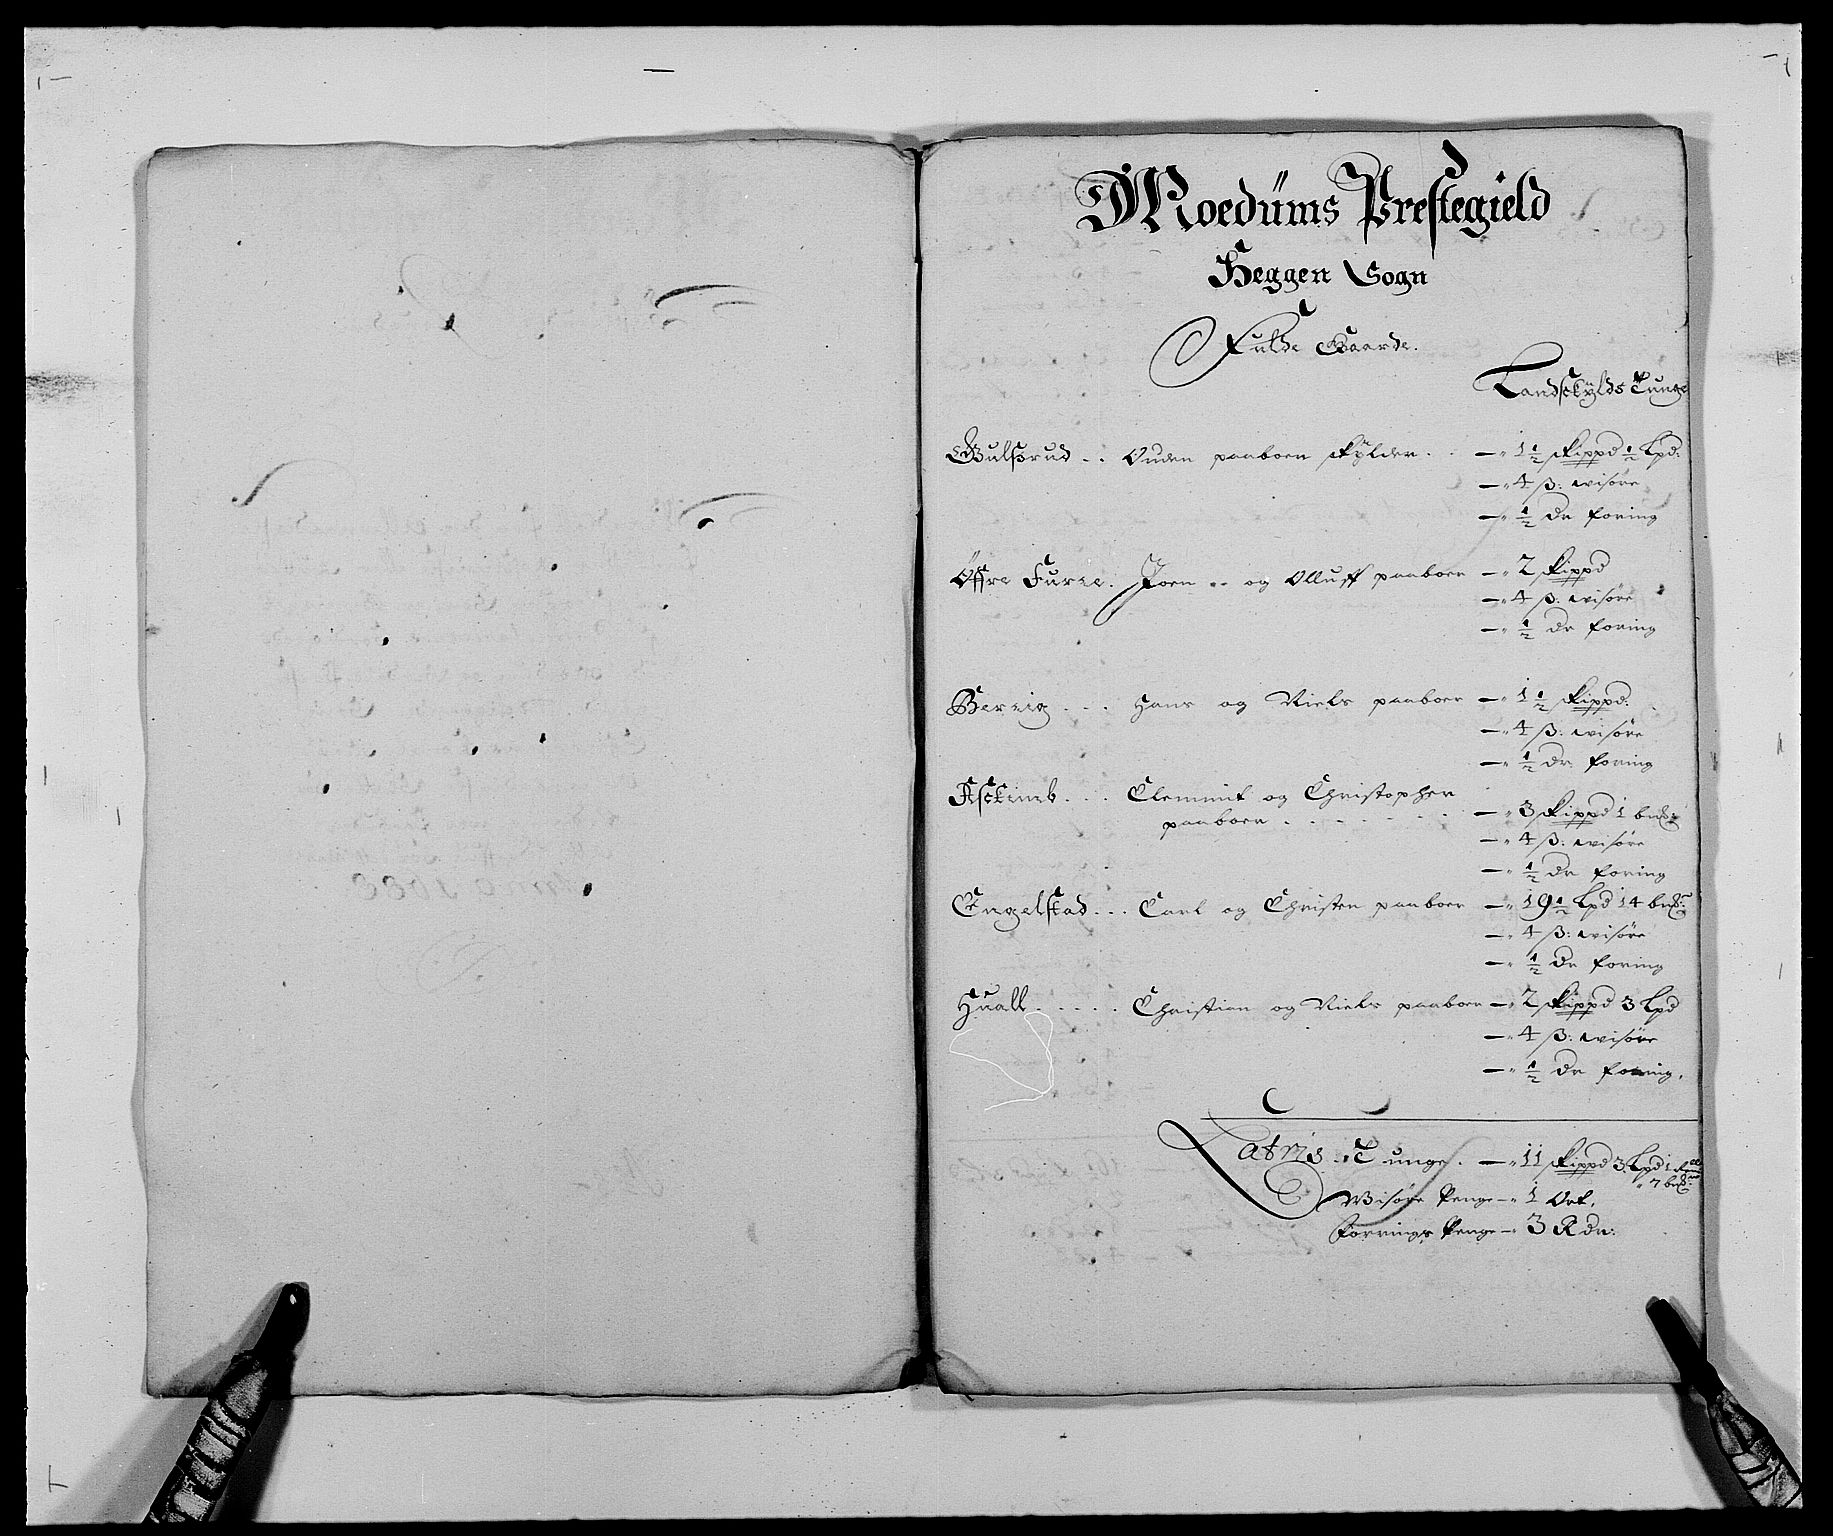 Moedüms Prestegield
Heggen Sogn
Fulde Gaarde.
Landsckÿlds Tunge
Gulsrud .. Ouden paaboer skÿlder . . — 1 1/2 skippd 1/2 Lpd:
— 4 ß: wisöre
— 1/2 dr foring
Öffre Furre. Joen -- og Olluff paaboer — 2 skippd
— 4 ß: wisöre
— 1/2 dr foring
Berrig . . . Hans og Niels paaboer — 1 1/2 skippd.
— 4 ß: wisöre
— 1/2 dr: foring
Asckimb . . . Clemmit og Christopher
paaboer . . . . . . . — 3 skippd 1 bnd:
— 4 ß: wisöre
— 1/2 dr foring
Engelstad ... Carl og Christen paaboer — 19 1/2 Lpd 14 bnd:
— 4 ß: wisöre
— 1/2 dr foring
Huall . . . . . Christian og Niels paaboer — 2 skippd 3 Lpd
— 4 ß: wisöre
— 1/2 dr foring.
Latris Tunge. — 11 skippd 3 Lpd 1
7 bnd:
Wisöre Penge — 1 Ort.
Forrings Penge — 3 Rdr: